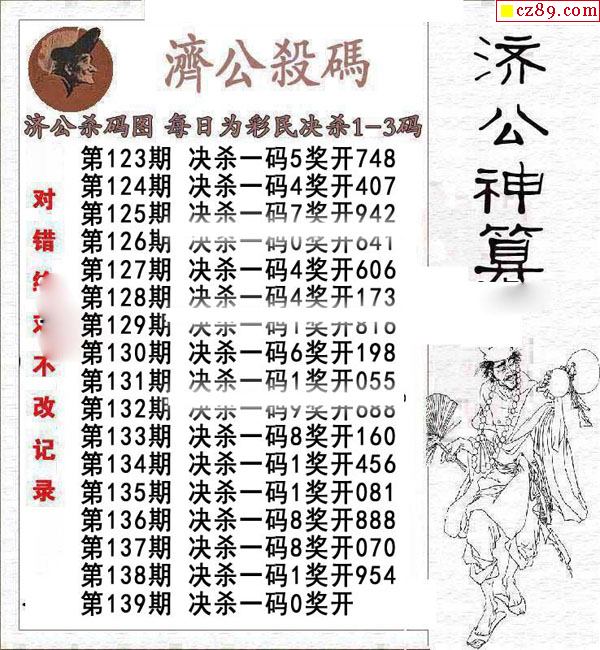 cz89.com
濟公殺碼
济公杀码图 每日为彩民决杀1-3码
第123期 决杀一码5奖开748
第124期 决杀一码4奖开407
第125期 决杀一码7奖开942
第126期 决杀一码0奖开641
第127期 决杀一码4奖开606
第128期 决杀一码4奖开173
第129期 决杀一码1奖开816
第130期 决杀一码6奖开198
第131期 决杀一码1奖开055
第132期 决杀一码9奖开688
第133期 决杀一码8奖开160
第134期 决杀一码1奖开456
第135期 决杀一码1奖开081
第136期 决杀一码8奖开888
第137期 决杀一码8奖开070
第138期 决杀一码1奖开954
第139期 决杀一码0奖开
对错
不改记录
济公神算